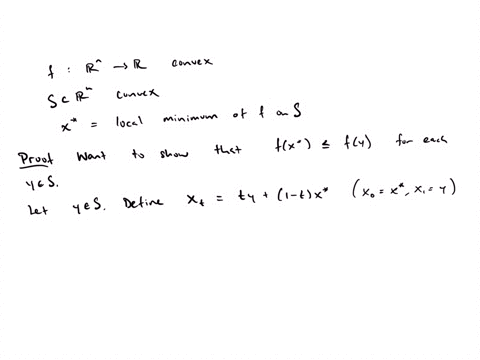 f : ℝⁿ → ℝ convex
S ⊂ ℝⁿ convex
x* = local minimum of f on S
Proof Want to show that f(x*) ≤ f(y) for each
y ∈ S.
Let y ∈ S. Define xₜ = ty + (1-t)x* (x₀ = x*, x₁ = y)